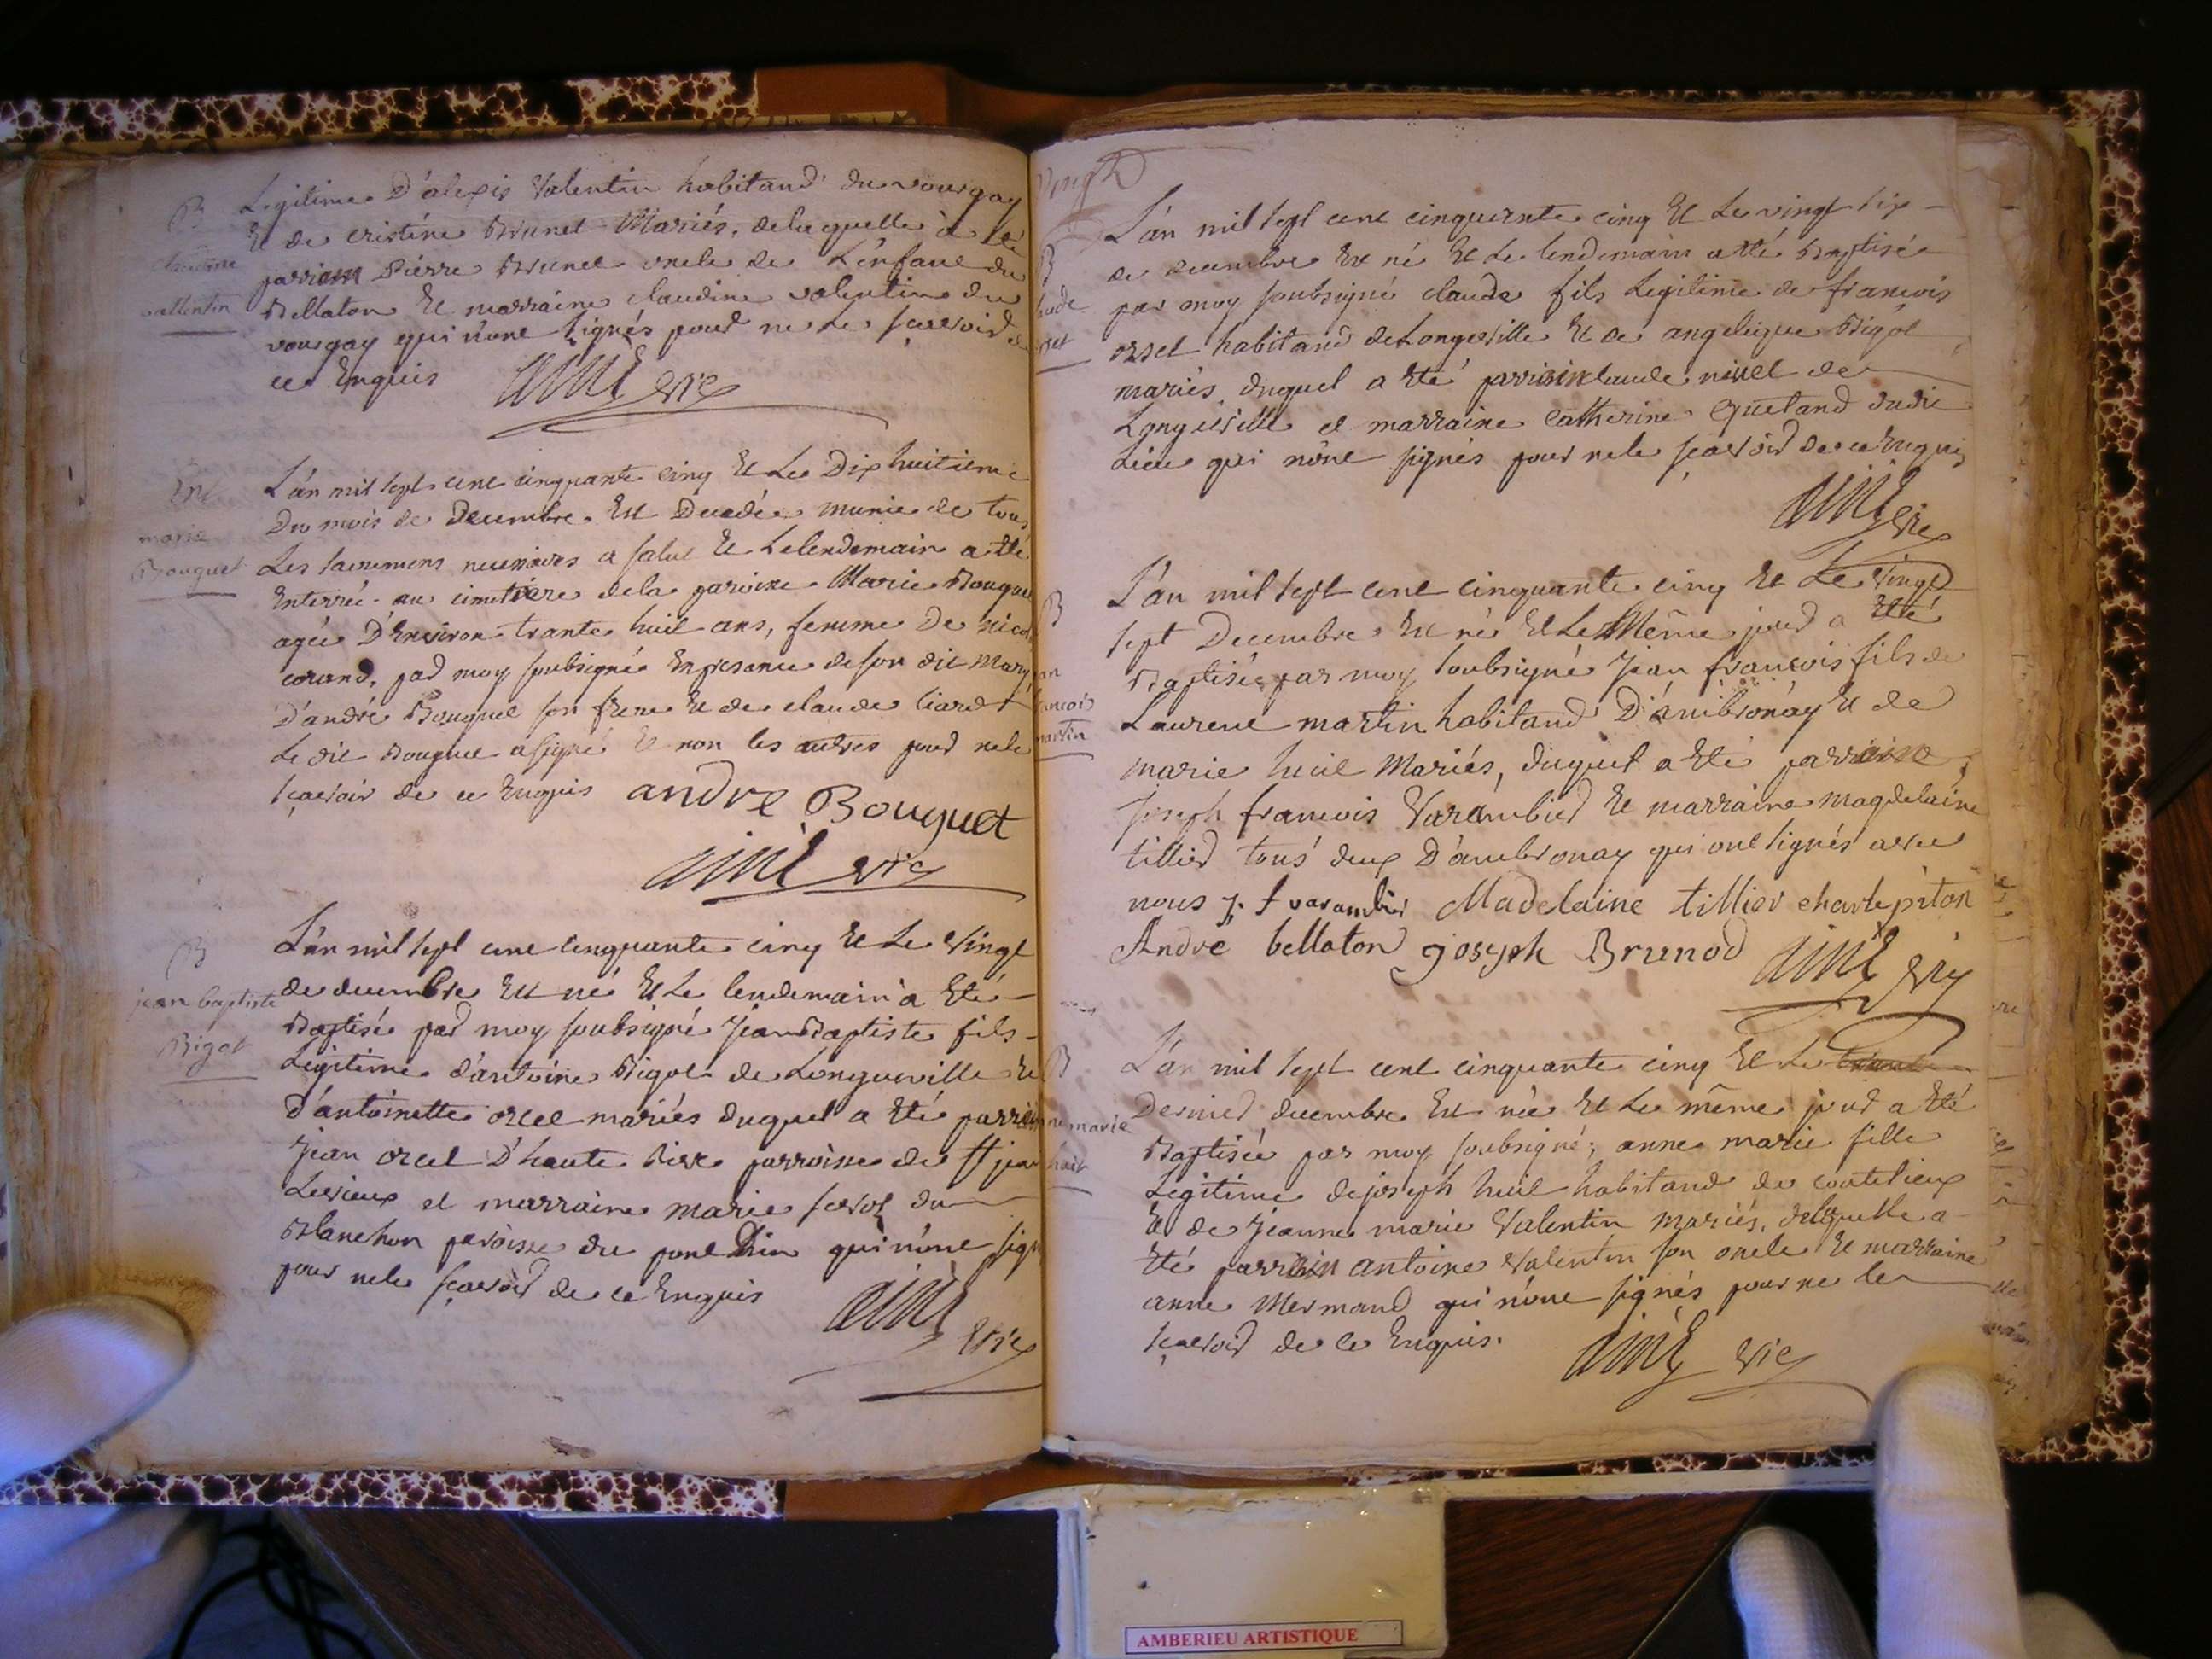 B
claudine
vallentin
Legitime D'alexis Valentin habitand du vourgay
Et de cristine Brunet Mariés, delaquelle à été
parrain Pierre Brunet oncle de L'enfant du
Bellaton Et marraine claudine valentin du
vourgay qui n'ont signés pour ne le sçavoird de
ce Enquis
aimé vic
Ent
marie
Bouquet
L'an mil sept cent cinquante cinq Et Le Dix huitieme
Du mois de Decembre Est Decedée munie de tous
Les sacremens necessaires a salut Et Lelendemain a été
Enterrée au cimetiere dela paroisse Marie Bouquet
agée D'Environ trante huit ans, femme De
, pard moy soubsigné En presance de son dit Mary
D'andré Bouquet son frere Et de claude
Le dit Bouquet a signé Et non les autres pour nele
sçavoir de ce Enquis andre Bouguet
aimé vic
B
jean baptiste
Bigot
L'an mil sept cent cinquante cinq Et Le Vingt
de decembre Est né Et Le lendemain a Eté
Baptisée pard moy soubsigné Jean Baptiste fils
Legitime d'antoine Bigot de Longueville Et
d'antoinette orcel mariés duquel a Eté parrain
Jean orcel D'haute Rive parroisse de st jean
Levieux et marraine marie du
Blanchon paroisse du pont Dain qui n'ont sign
pour nele sçavoird de ce Enquis
aimé vic
Vingt
B
L'an mil sept cent cinquante cinq Et Le vingt six
de decembre Est né Et Le lendemain a été Baptisée
par moy soubsigné claude fils Legitime de francois
orset habitand de Longeville Et de angelique Bigot
mariés, duquel a Eté parrain claude nivet de
Longeville et marraine catherine dudit
Lieu qui nont signés pour nele sçavoird de ce Enquis
aimé vic
B
ancois
martin
L'an mil sept cent cinquante cinq Et Le Vingt
sept Decembre Est né Et Le Même jourd a Eté
Baptisée par moy soubsigné Jean francois fils de
Laurent martin habitand D'ambronay Et de
marie huit Mariés, duquel a Eté parraine
Joseph francois Varambied Et marraine magdelaine
tillied tous deux D'ambronay qui ont signés avec
nous j. f varambier Madelaine tillier charle piton
André bellaton joseph Brunod aimé vic
B
ne marie
huit
L'an mil sept cent cinquante cinq Et Le
Dernied decembre Est née Et Le même jourd a Eté
Baptisée par moy soubsigné; anne marie fille
Legitime de joseph huit habitand de coutelieux
Et de Jeanne marie Valentin mariés, delaquelle a
Eté parrain antoine Valentin son oncle Et marraine
anne Mermand qui n'ont signés pour ne le
sçavoird de ce Enquis.
aimé vic
AMBERIEU ARTISTIQUE